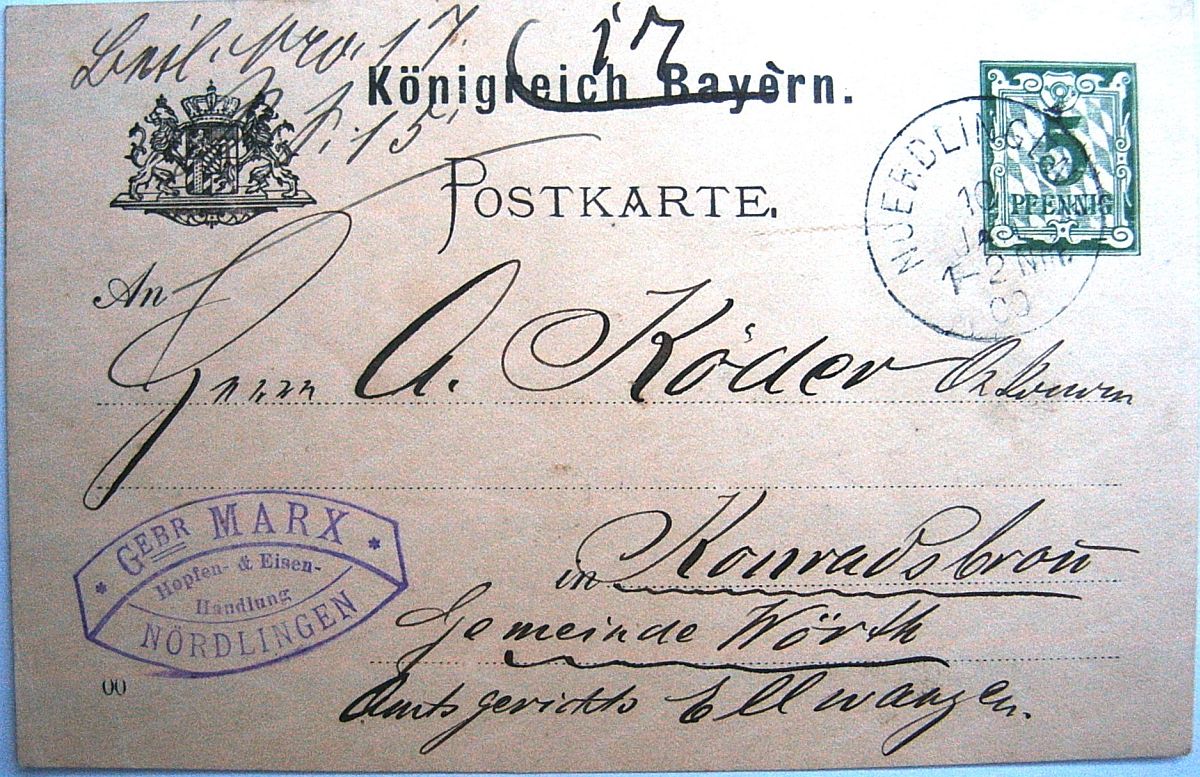 Beil. Nro. 17.
17
Königreich Bayern.
P. 15
POSTKARTE.
5
PFENNIG
NUERDLINGEN
10
JA
1-2 Nm.
00
An
Herrn A. Köder Ökonom
in Konradsbron̄
Gemeinde Wörth
Amtsgerichts Ellwangen.
GEBR MARX
Hopfen- & Eisen-
Handlung
NÖRDLINGEN
00